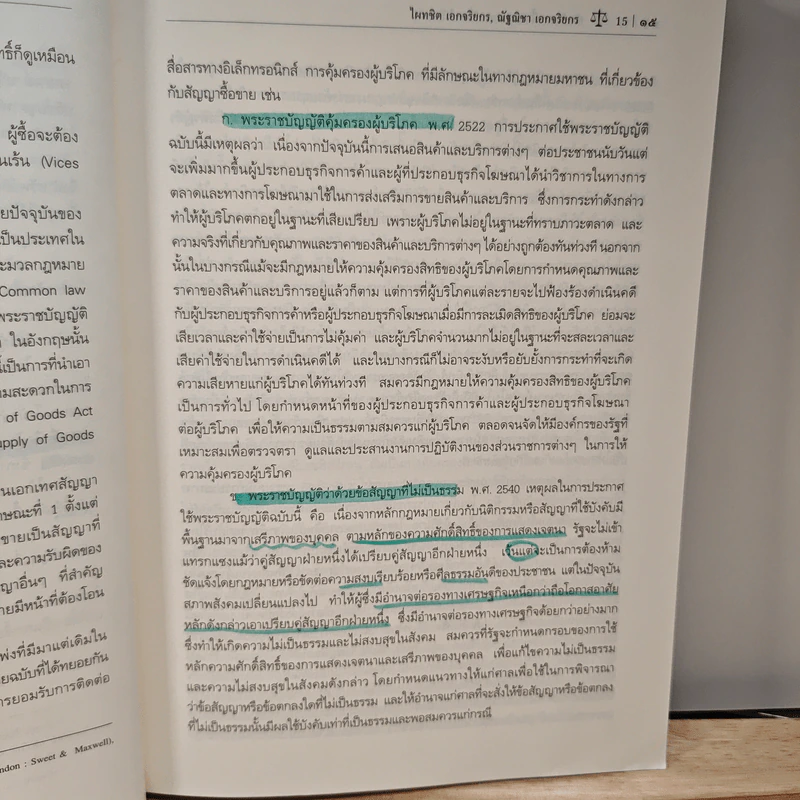 ทธิ์ก็ดูเหมือน
ผู้ซื้อจะต้อง
นเร้น (Vices
ยปัจจุบันของ
เป็นประเทศใน
ะมวลกฎหมาย
Common law
พระราชบัญญัติ
ในอังกฤษนั้น
เป็นการที่นำเอา
ามสะดวกในการ
of Goods Act
upply of Goods
นเอกเทศสัญญา
กษณะที่ 1 ตั้งแต่
ขายเป็นสัญญาที่
และความรับผิดของ
ญาอื่นๆ ที่สำคัญ
ายมีหน้าที่ต้องโอน
พ่งที่มีมาแต่เดิมใน
ยฉบับที่ได้ทยอยกัน
ารยอมรับการติดต่อ
ndon : Sweet & Maxwell),
ไผทชิต เอกจริยกร, ณัฐณิชา เอกจริยกร 15 | ๑๕
สื่อสารทางอิเล็กทรอนิกส์ การคุ้มครองผู้บริโภค ที่มีลักษณะในทางกฎหมายมหาชน ที่เกี่ยวข้อง
กับสัญญาซื้อขาย เช่น
ก. พระราชบัญญัติคุ้มครองผู้บริโภค พ.ศ. 2522 การประกาศใช้พระราชบัญญัติ
ฉบับนี้มีเหตุผลว่า เนื่องจากปัจจุบันนี้การเสนอสินค้าและบริการต่างๆ ต่อประชาชนนับวันแต่
จะเพิ่มมากขึ้นผู้ประกอบธุรกิจการค้าและผู้ที่ประกอบธุรกิจโฆษณาได้นำวิชาการในทางการ
ตลาดและทางการโฆษณามาใช้ในการส่งเสริมการขายสินค้าและบริการ ซึ่งการกระทำดังกล่าว
ทำให้ผู้บริโภคตกอยู่ในฐานะที่เสียเปรียบ เพราะผู้บริโภคไม่อยู่ในฐานะที่ทราบภาวะตลาด และ
ความจริงที่เกี่ยวกับคุณภาพและราคาของสินค้าและบริการต่างๆ ได้อย่างถูกต้องทันท่วงที นอกจาก
นั้นในบางกรณีแม้จะมีกฎหมายให้ความคุ้มครองสิทธิของผู้บริโภคโดยการกำหนดคุณภาพและ
ราคาของสินค้าและบริการอยู่แล้วก็ตาม แต่การที่ผู้บริโภคแต่ละรายจะไปฟ้องร้องดำเนินคดี
กับผู้ประกอบธุรกิจการค้าหรือผู้ประกอบธุรกิจโฆษณาเมื่อมีการละเมิดสิทธิของผู้บริโภค ย่อมจะ
เสียเวลาและค่าใช้จ่ายเป็นการไม่คุ้มค่า และผู้บริโภคจำนวนมากไม่อยู่ในฐานะที่จะสละเวลาและ
เสียค่าใช้จ่ายในการดำเนินคดีได้ และในบางกรณีก็ไม่อาจระงับหรือยับยั้งการกระทำที่จะเกิด
ความเสียหายแก่ผู้บริโภคได้ทันท่วงที สมควรมีกฎหมายให้ความคุ้มครองสิทธิของผู้บริโภค
เป็นการทั่วไป โดยกำหนดหน้าที่ของผู้ประกอบธุรกิจการค้าและผู้ประกอบธุรกิจโฆษณา
ต่อผู้บริโภค เพื่อให้ความเป็นธรรมตามสมควรแก่ผู้บริโภค ตลอดจนจัดให้มีองค์กรของรัฐที่
เหมาะสมเพื่อตรวจตรา ดูแลและประสานงานการปฏิบัติงานของส่วนราชการต่างๆ ในการให้
ความคุ้มครองผู้บริโภค
ข. พระราชบัญญัติว่าด้วยข้อสัญญาที่ไม่เป็นธรรม พ.ศ. 2540 เหตุผลในการประกาศ
ใช้พระราชบัญญัติฉบับนี้ คือ เนื่องจากหลักกฎหมายเกี่ยวกับนิติกรรมหรือสัญญาที่ใช้บังคับมี
พื้นฐานมาจากเสรีภาพของบุคคล ตามหลักของความศักดิ์สิทธิ์ของการแสดงเจตนา รัฐจะไม่เข้า
แทรกแซงแม้ว่าคู่สัญญาฝ่ายหนึ่งได้เปรียบคู่สัญญาอีกฝ่ายหนึ่ง เว้นแต่จะเป็นการต้องห้าม
ชัดแจ้งโดยกฎหมายหรือขัดต่อความสงบเรียบร้อยหรือศีลธรรมอันดีของประชาชน แต่ในปัจจุบัน
สภาพสังคมเปลี่ยนแปลงไป ทำให้ผู้ซึ่งมีอำนาจต่อรองทางเศรษฐกิจเหนือกว่าถือโอกาสอาศัย
หลักดังกล่าวเอาเปรียบคู่สัญญาอีกฝ่ายหนึ่ง ซึ่งมีอำนาจต่อรองทางเศรษฐกิจด้อยกว่าอย่างมาก
ซึ่งทำให้เกิดความไม่เป็นธรรมและไม่สงบสุขในสังคม สมควรที่รัฐจะกำหนดกรอบของการใช้
หลักความศักดิ์สิทธิ์ของการแสดงเจตนาและเสรีภาพของบุคคล เพื่อแก้ไขความไม่เป็นธรรม
และความไม่สงบสุขในสังคมดังกล่าว โดยกำหนดแนวทางให้แก่ศาลเพื่อใช้ในการพิจารณา
ว่าข้อสัญญาหรือข้อตกลงใดที่ไม่เป็นธรรม และให้อำนาจแก่ศาลที่จะสั่งให้ข้อสัญญาหรือข้อตกลง
ที่ไม่เป็นธรรมนั้นมีผลใช้บังคับเท่าที่เป็นธรรมและพอสมควรแก่กรณี